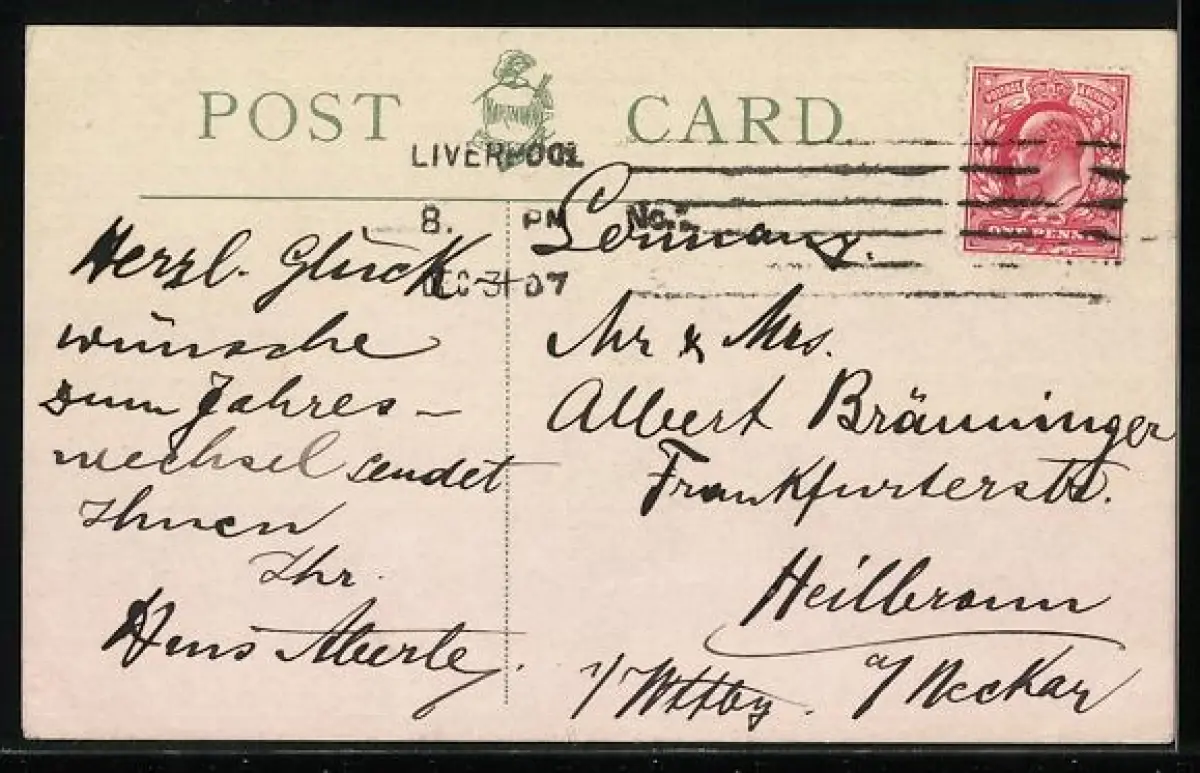 POST CARD
LIVERPOOL
8. PM No.
DEC 31 07
ONE PENNY
Germany.
Herzl. Glück
wünsche
zum Jahres-
wechsel sendet
Ihnen
Ihr.
Hans Aberle.
Mr & Mrs.
Albert Bräuninger
Frankfurterstr.
Heilbronn
a/ Neckar
i/ Wttbg.